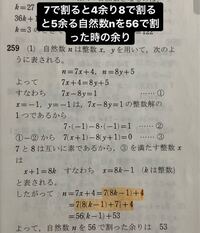 7で割ると4余り8で割る
と5余る自然数nを56で割
った時の余り
k=27
36k+1
k=3
259 (1) 自然数 n は整数 x, y を用いて,次のよう
に表される。
n=7x+4, n=8y+5
よって 7x+4=8y+5
すなわち 7x-8y=1 …… ①
x=-1, y=-1 は, 7x-8y=1 の整数解の
1つであるから
7・(-1)-8・(-1)=1 …… ②
①-② から 7(x+1)-8(y+1)=0 …… ③
7と8は互いに素であるから, ③ を満たす整数 x
は x+1=8k すなわち x=8k-1 (k は整数)
と表される。
したがって n=7x+4=7(8k-1)+4
=7(8k-1)+4
=56k-53
よって, 自然数 n を 56 で割った余りは 53